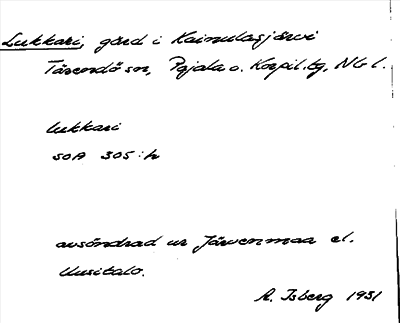 Lukkari, gård i Kainulasjärvi
Tärendö sn, Pajala o. Korpil. tg, Nb l.
lukkari
SOA 305:h
avsöndrad ur Järvenmaa el.
Uusitalo.
A. Isberg 1931